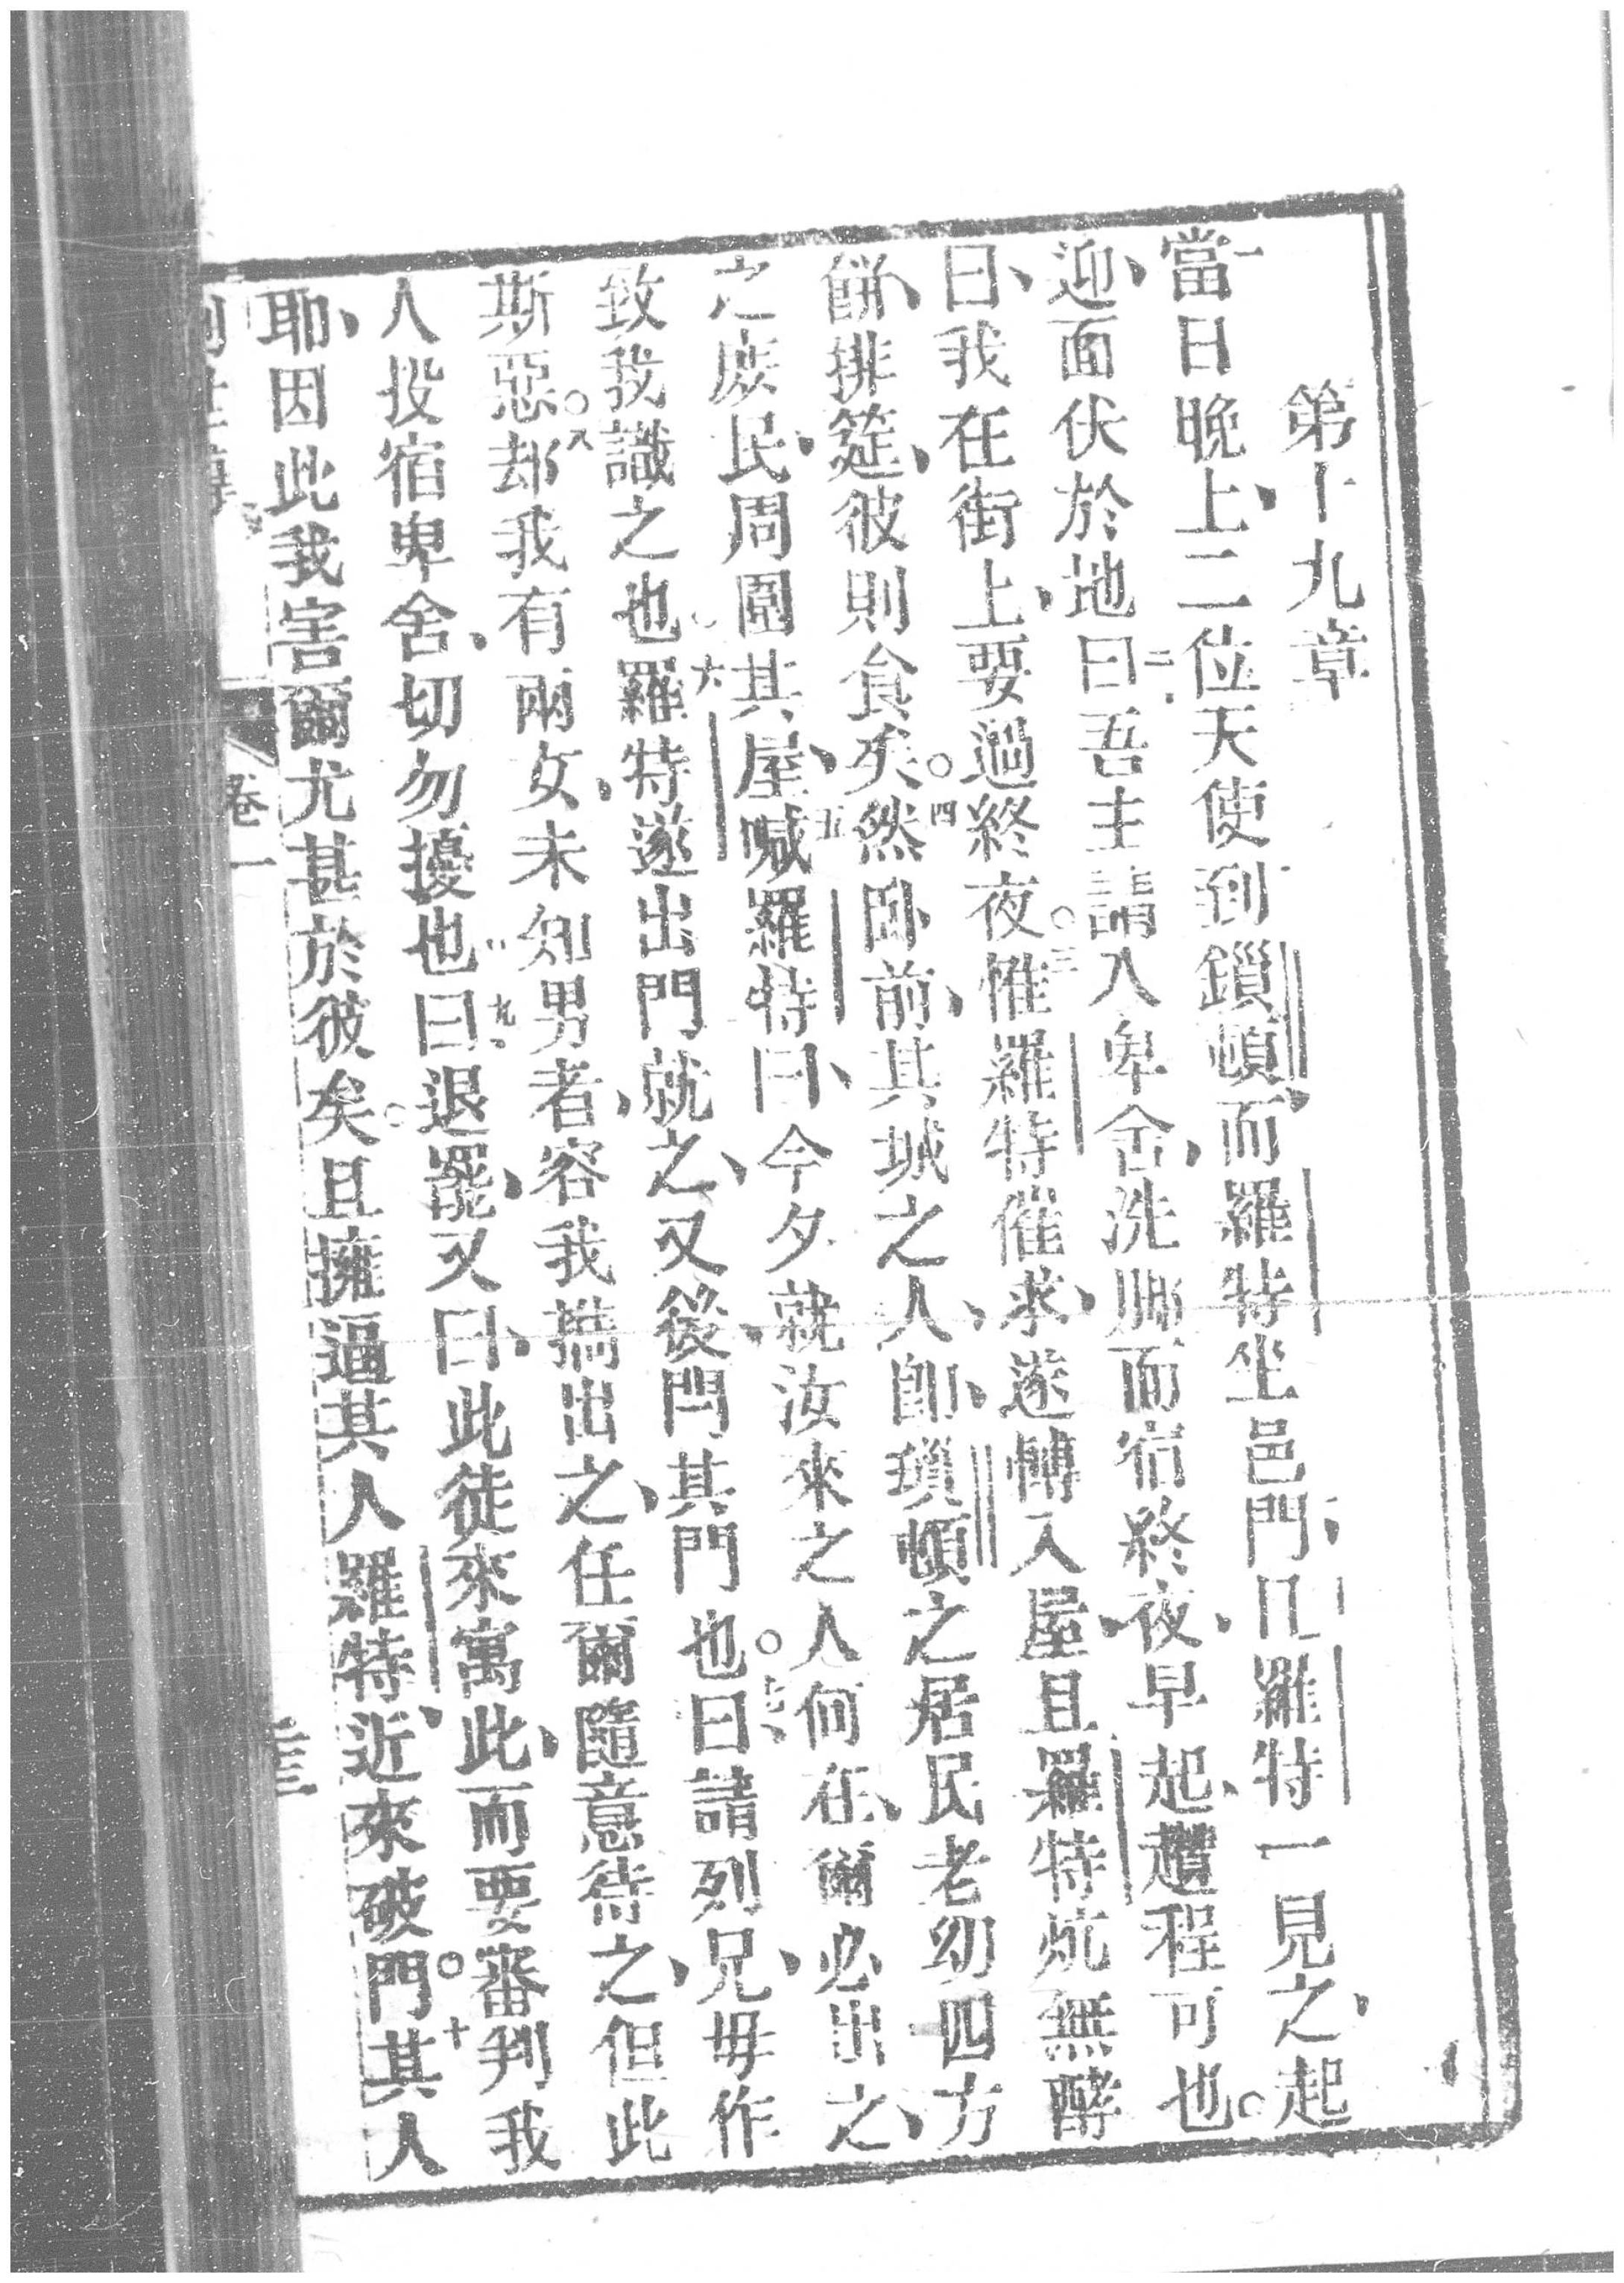 第十九章
一當日晚上、二位天使到鎖頓、而羅特坐邑門、且羅特一見之、起
迎、面伏於地二曰吾主請入卑舍、洗脚而宿終夜、早起、趲程可也。
曰、我在街上、要過終夜。三惟羅特催求、遂轉入屋、且羅特炕無酵
餅、排筵、彼則食矣。四然卧前、其城之人、卽瑣頓之居民老幼四方
之庶民、周圍其屋、五喊羅特曰、今夕就汝來之人何在、爾必出之、
致我識之也。六羅特遂出門就之、又後、閂其門也。七曰請列兄、毋作
斯惡。八却我有兩女、未知男者、容我攜出之、任爾隨意待之、但此
人投宿卑舍、切勿擾也九曰退罷、又曰、此徒來寓此、而要審判我
耶、因此我害爾尤甚於彼矣。且擁逼其人羅特、近來破門。十其人
卷一